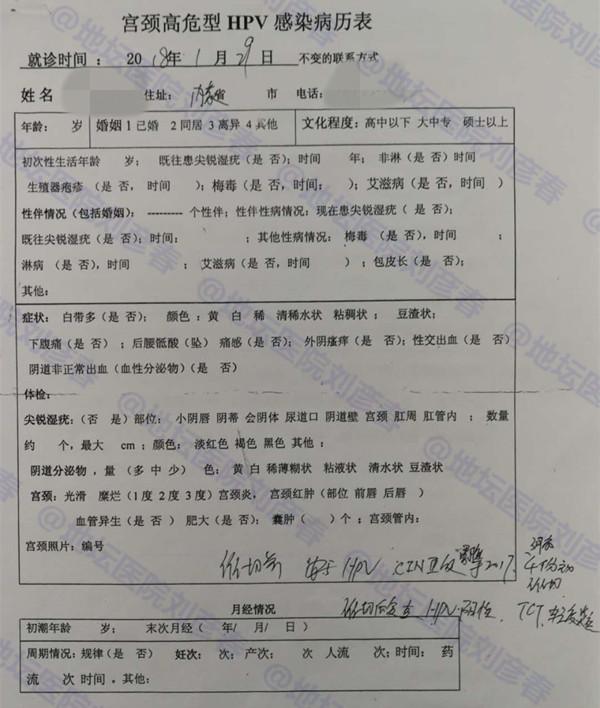 宫颈高危型 HPV 感染病历表
就诊时间： 2018年 1 月 29 日 不变的联系方式
姓名 住址： 省 市 电话：
年龄： 岁 婚姻 1 已婚 2 同居 3 离异 4 其他 文化程度：高中以下 大中专 硕士以上
初次性生活年龄 岁； 既往患尖锐湿疣（是 否）；时间 年； 非淋（是 否）时间
生殖器疱疹 （是 否， 时间 ）；梅毒（是 否，时间： ）；艾滋病（是 否，时间 ）
性伴情况（包括婚姻）： --------- 个性伴；性伴性病情况：现在患尖锐湿疣（ 是 否）；
既往尖锐湿疣（是 否）；时间： ；其他性病情况： 梅毒 （是 否），时间 ；
淋病 （是 否），时间 ； 艾滋病（是 否，时间 ） ；包皮长（是 否）；
其他：
症状： 白带多（是 否）； 颜色 ：黄 白 稀 清稀水状 粘稠状 ； 豆渣状；
下腹痛（是 否）； 后腰骶酸（坠） 痛感（是 否）； 外阴瘙痒（是 否）；性交出血（是 否）
阴道非正常出血（血性分泌物）（是 否）
体检：
尖锐湿疣：（否 是）部位： 小阴唇 阴蒂 会阴体 尿道口 阴道壁 宫颈 肛周 肛管内 ； 数量
约 个，最大 cm ；颜色： 淡红色 褐色 黑色 其他 ：
阴道分泌物 ，量 （多 中 少） 色： 黄 白 稀薄糊状 粘液状 清水状 豆渣状
宫颈：光滑 糜烂（1 度 2 度 3 度）宫颈炎， 宫颈红肿（部位 前唇 后唇 ）
血管异生（是 否 ） 肥大（是 否）； 囊肿（ ）个 ；宫颈管内：
宫颈照片：编号
HPV CIN Ⅱ级 2017.
复查 HPV 阳性, TCT
月经情况
初潮年龄 岁； 末次月经（ 年/ 月/ 日 ）
周期情况：规律（是 否） 妊次： 次；产次： 次 人流 次；时间： 药
流 次 时间 。其他：
@地坛医院刘彦春